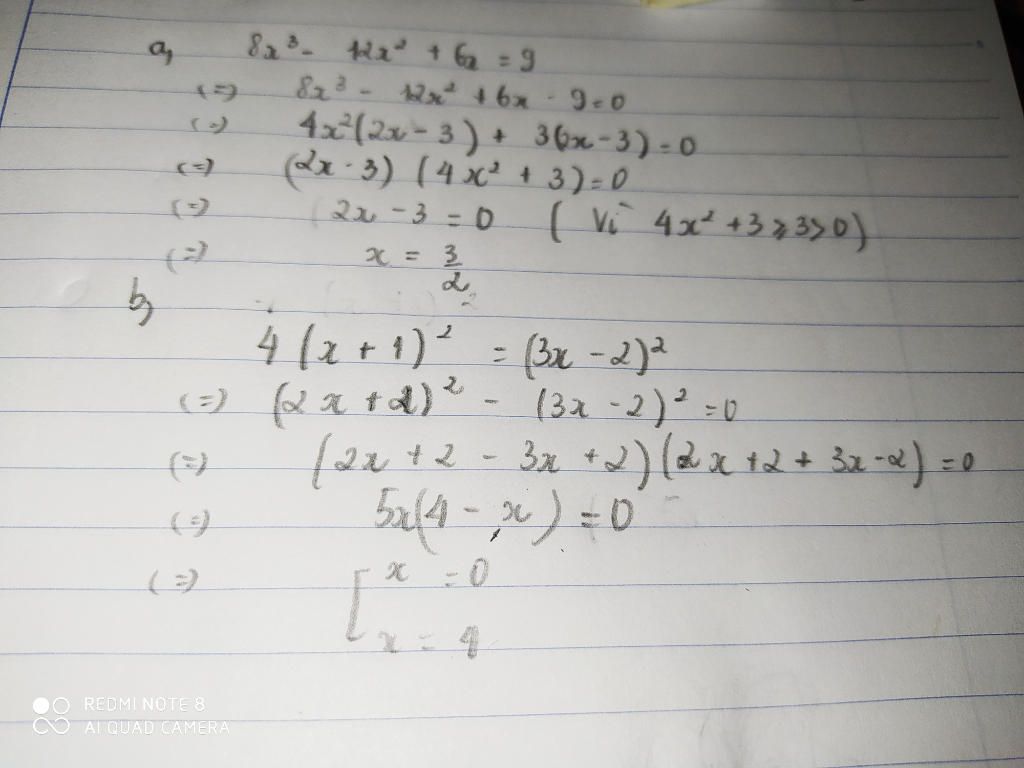 a, 8x³ - 12x² + 6x = 9
(=) 8x³ - 12x² + 6x - 9 = 0
(=) 4x²(2x - 3) + 3(2x - 3) = 0
(=) (2x - 3) (4x² + 3) = 0
(=) 2x - 3 = 0 ( Vì 4x² + 3 ⩾ 3 > 0)
(=) x = 3/2
b,
4 (x + 1)² = (3x - 2)²
(=) (2x + 2)² - (3x - 2)² = 0
(=) (2x + 2 - 3x + 2)(2x + 2 + 3x - 2) = 0
(=) 5x(4 - x) = 0
(=) [ x = 0
x = 4
REDMI NOTE 8
AI QUAD CAMERA